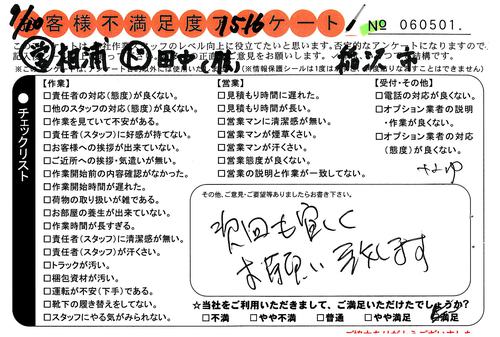 お客様不満足度アンケート！ № 060501.
【作業】
□責任者の対応(態度)が良くない。
□他のスタッフの対応(態度)が良くない。
□作業を見ていて不安がある。
□責任者(スタッフ)に好感が持てない。
□お客様への挨拶が出来ていない。
□ご近所への挨拶・気遣いが無い。
□作業開始前の内容確認がなかった。
□作業開始時間が遅れた。
□荷物の取り扱いが雑である。
□お部屋の養生が出来ていない。
□作業時間が長すぎる。
□責任者(スタッフ)に清潔感が無い。
□責任者(スタッフ)が汗くさい。
□トラックが汚い。
□梱包資材が汚い。
□運転が不安(下手)である。
□靴下の履き替えをしてない。
□スタッフにやる気がみられない。
【営業】
□見積もり時間に遅れた。
□見積もり時間が長い。
□営業マンに清潔感が無い。
□営業マンが煙草くさい。
□営業マンが汗くさい。
□営業態度が良くない。
□営業の説明と作業が一致してない。
【受付・その他】
□電話の対応が良くない。
□オプション業者の説明
・作業が良くない。
□オプション業者の対応
(態度)が良くない。
チェックリスト
その他、ご意見・ご要望等ありましたらお書き下さい。
次回も宜しく
お願い致します
☆当社をご利用いただきまして、ご満足いただけたでしょうか？
□不満 □やや不満 □普通 □やや満足 □満足